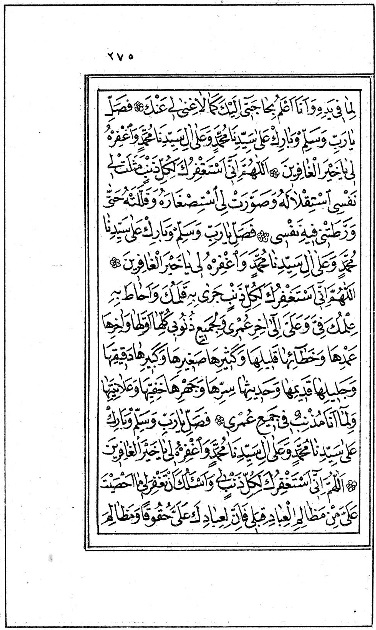 ٢٧٥
لِمَا فِي يَدِهِ وَأَنَا أَعْلَمُ بِحَاجَتِي إِلَيْكَ كَمَا لَا غِنَى لِي عَنْكَ ۞ فَصَلِّ
يَا رَبِّ وَسَلِّمْ وَبَارِكْ عَلَى سَيِّدِنَا مُحَمَّدٍ وَعَلَى آلِ سَيِّدِنَا مُحَمَّدٍ وَاغْفِرْهُ
لِي يَا خَيْرَ الْغَافِرِينَ ۞ اَللّٰهُمَّ إِنِّي أَسْتَغْفِرُكَ لِكُلِّ ذَنْبٍ مَثَّلَتْ لِي
نَفْسِي اسْتِقْلَالَهُ وَصَوَّرَتْ لِي اسْتِصْغَارَهُ وَقَلَّلَتْهُ حَتَّى
وَرَّطَتْنِي فِيهِ نَفْسِي ۞ فَصَلِّ يَا رَبِّ وَسَلِّمْ وَبَارِكْ عَلَى سَيِّدِنَا
مُحَمَّدٍ وَعَلَى آلِ سَيِّدِنَا مُحَمَّدٍ وَاغْفِرْهُ لِي يَا خَيْرَ الْغَافِرِينَ ۞
اَللّٰهُمَّ إِنِّي أَسْتَغْفِرُكَ لِكُلِّ ذَنْبٍ جَرَى بِهِ قَلَمُكَ وَأَحَاطَ بِهِ
عِلْمُكَ فِيَّ وَعَلَيَّ إِلَى آخِرِ عُمْرِي وَلِجَمِيعِ ذُنُوبِي كُلِّهَا أَوَّلِهَا وَآخِرِهَا
عَمْدِهَا وَخَطَائِهَا قَلِيلِهَا وَكَثِيرِهَا صَغِيرِهَا وَكَبِيرِهَا دَقِيقِهَا
وَجَلِيلِهَا قَدِيمِهَا وَحَدِيثِهَا سِرِّهَا وَجَهْرِهَا خَفِيِّهَا وَعَلَانِيَتِهَا
وَلِمَا أَنَا مُذْنِبٌ فِي جَمِيعِ عُمْرِي ۞ فَصَلِّ يَا رَبِّ وَسَلِّمْ وَبَارِكْ
عَلَى سَيِّدِنَا مُحَمَّدٍ وَعَلَى آلِ سَيِّدِنَا مُحَمَّدٍ وَاغْفِرْهُ لِي يَا خَيْرَ الْغَافِرِينَ
۞ اَللّٰهُمَّ إِنِّي أَسْتَغْفِرُكَ لِكُلِّ ذَنْبٍ لِي وَأَسْئَلُكَ أَنْ تَغْفِرَ لِي مَا أَحْصَيْتَ
عَلَيَّ مِنْ مَظَالِمِ الْعِبَادِ قِبَلِي فَإِنَّ لِعِبَادِكَ عَلَيَّ حُقُوقًا وَمَظَالِمَ